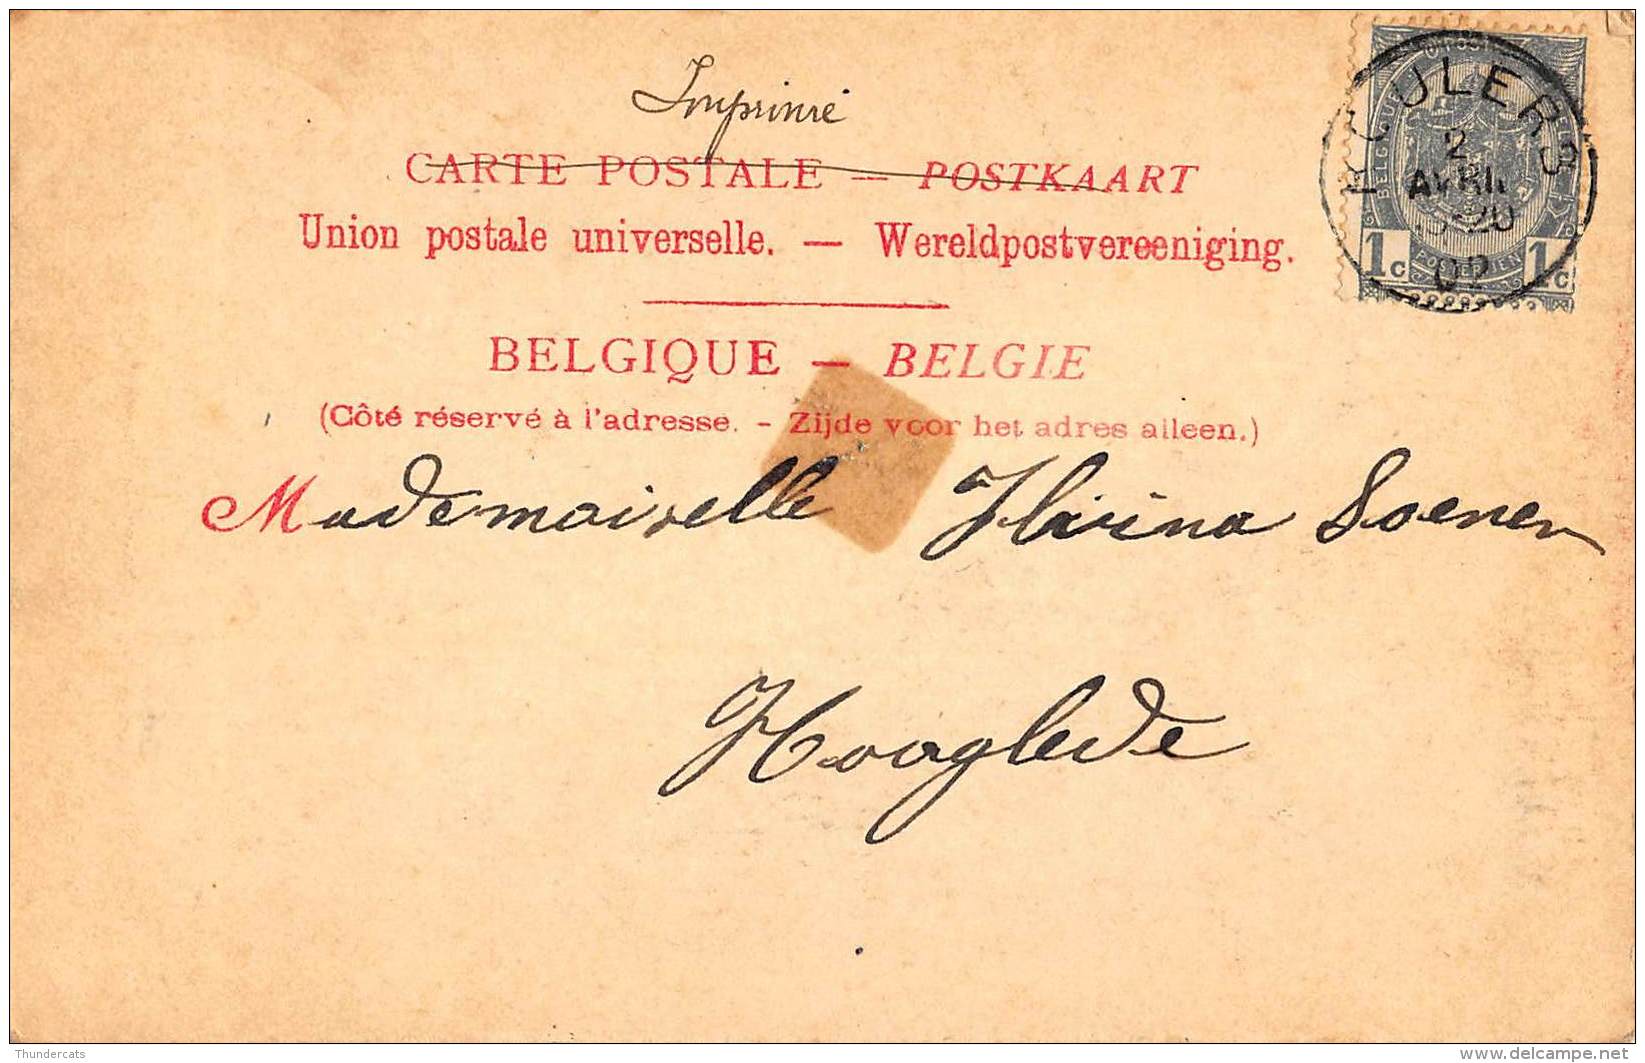 Imprimé
CARTE POSTALE — POSTKAART
Union postale universelle. — Wereldpostvereeniging.
BELGIQUE — BELGIE
(Côté réservé à l'adresse. - Zijde voor het adres alleen.)
Mademoiselle Flavina Soenen
Hooglede
ROULERS
2
AVRIL
02
1c 1c
Thundercats
delcampe.net